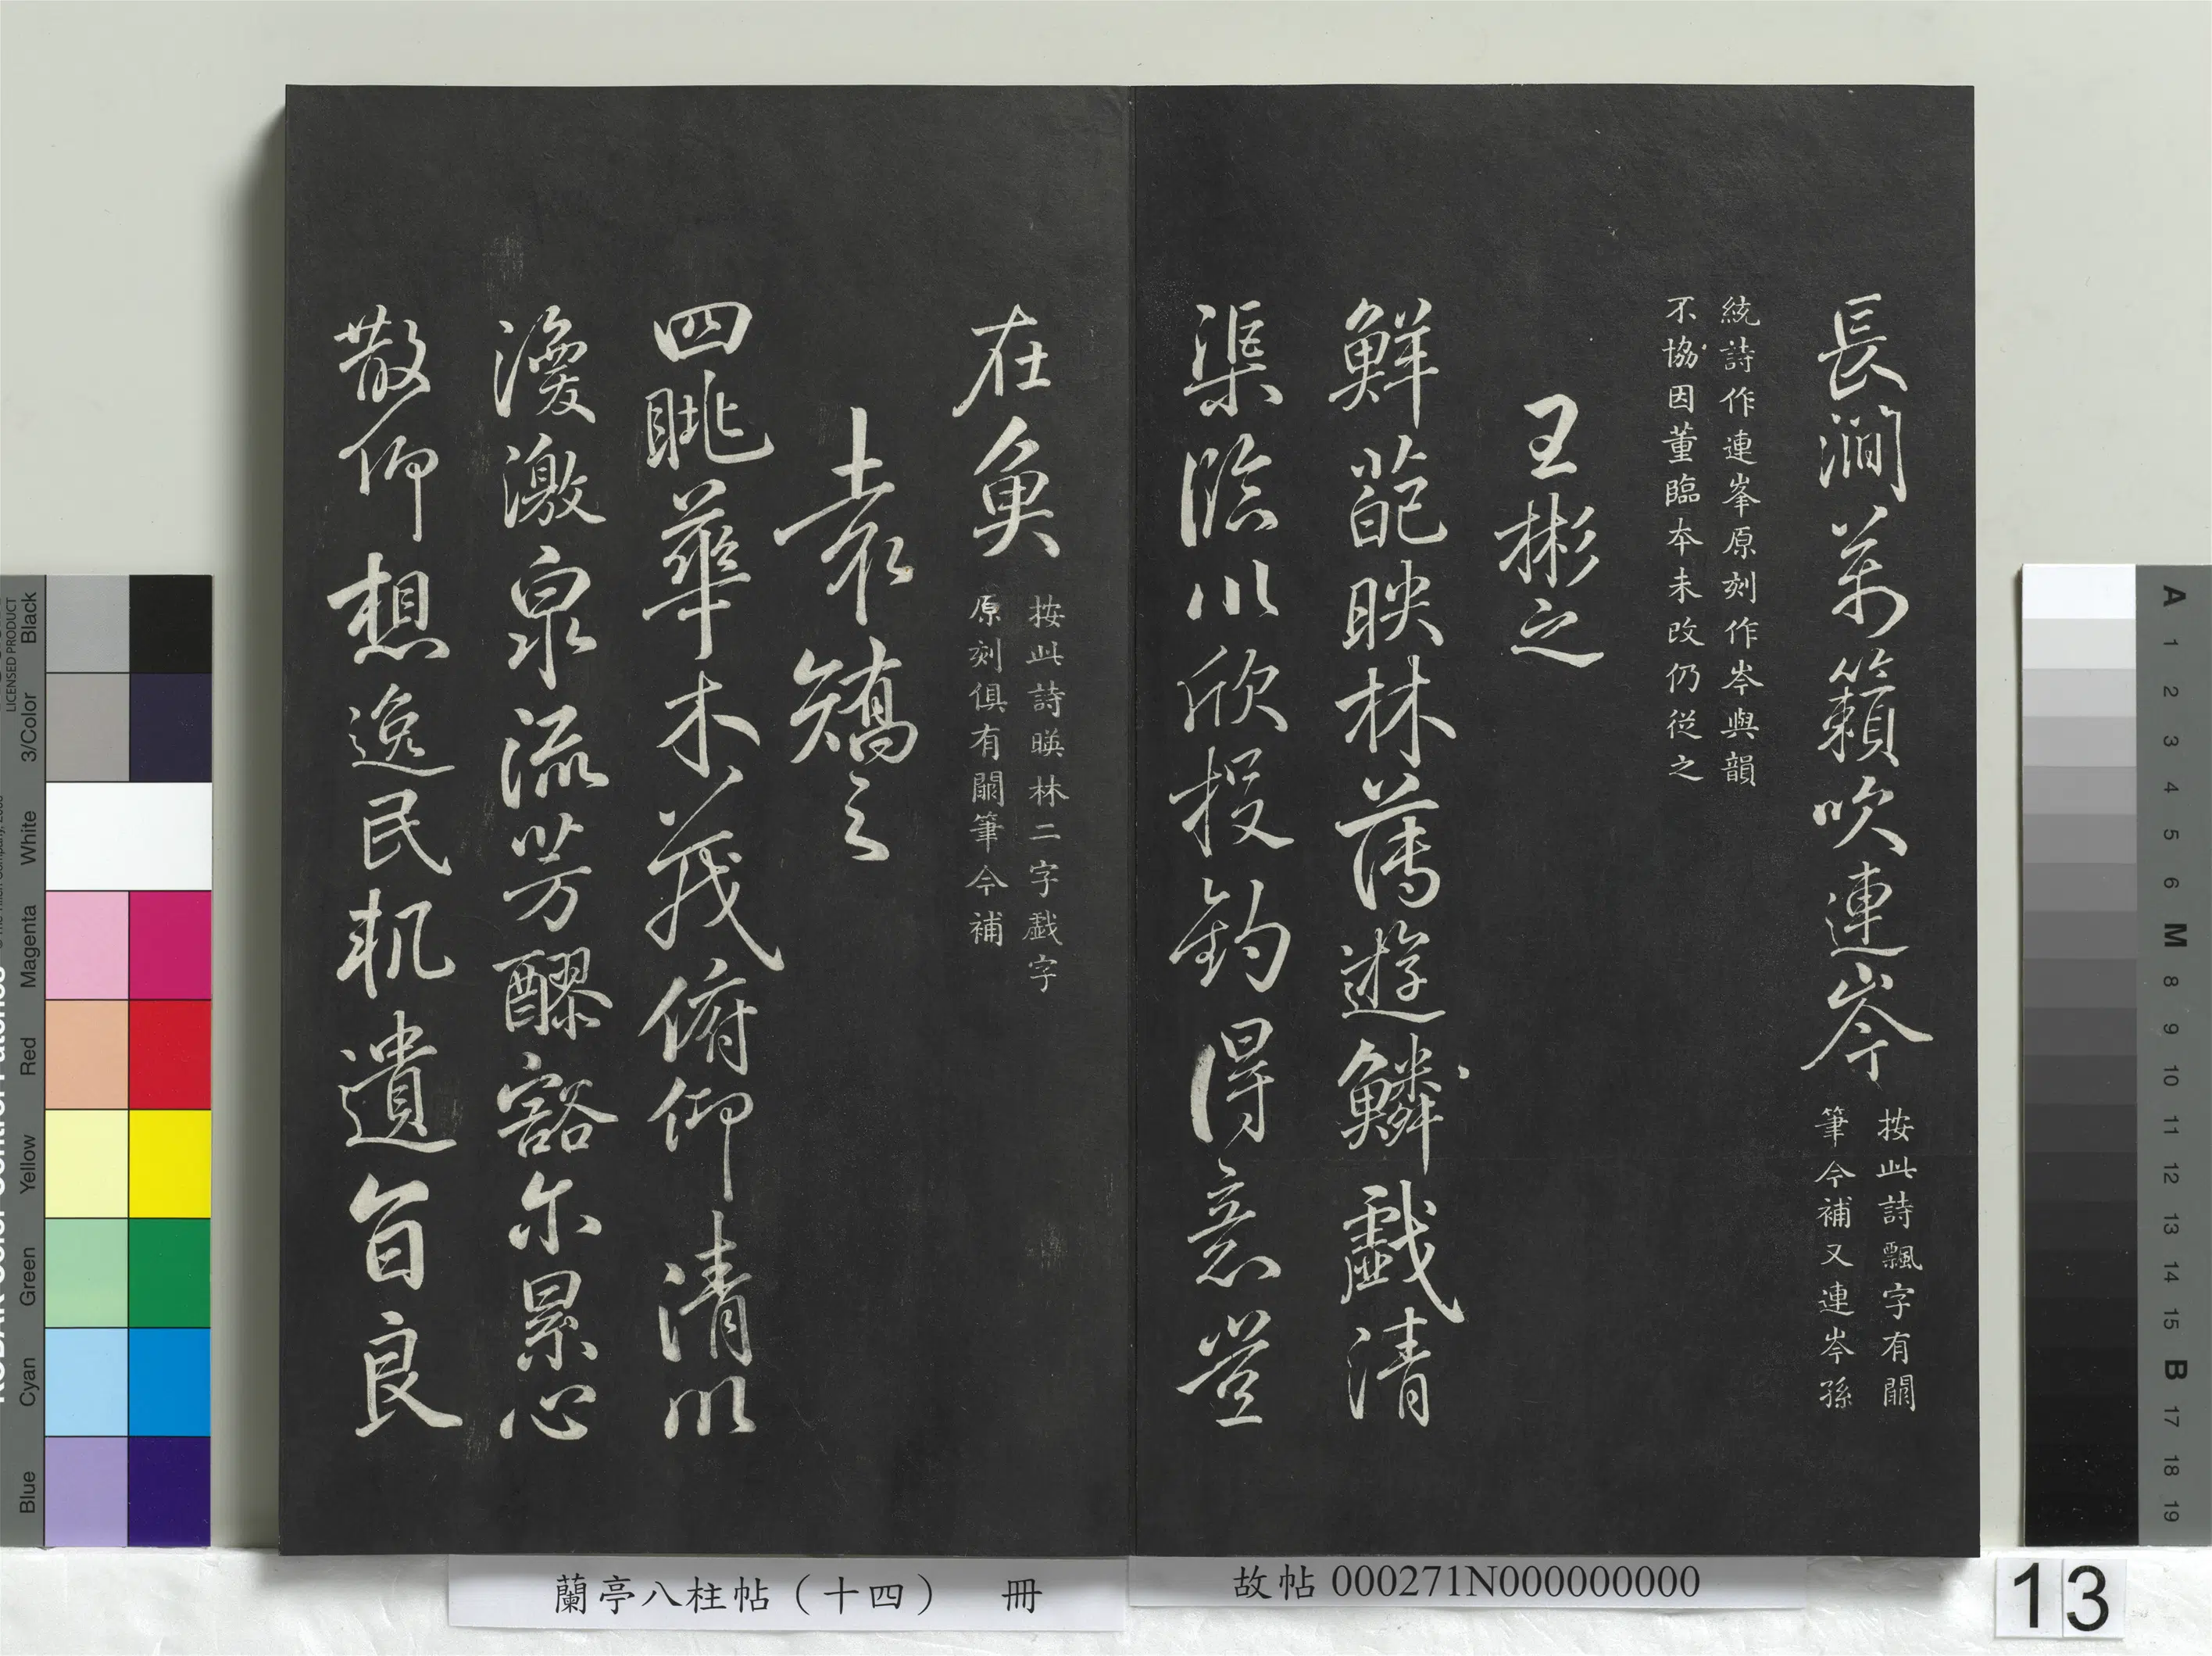 長澗萬籟吹連岑
按此詩飄字有闕
筆今補又連岑孫
統詩作連峯原刻作岑與韻
不協因董臨本未改仍從之
王彬之
鮮葩映林薄遊鱗戲清
渠臨川欣投釣得意豈
在魚
按此詩暎林二字戲字
原刻俱有闕筆今補
袁嶠之
四眺華木茂俯仰清川
渙激泉流芳醪豁尔累心
散仰想逸民軌遺旨良
蘭亭八柱帖（十四） 冊
故帖 000271N000000000
13
Black
3/Color
White
Magenta
Red
Yellow
Green
Cyan
Blue
LICENSED PRODUCT
A
1
2
3
4
5
6
M
8
9
10
11
12
13
14
15
B
17
18
19